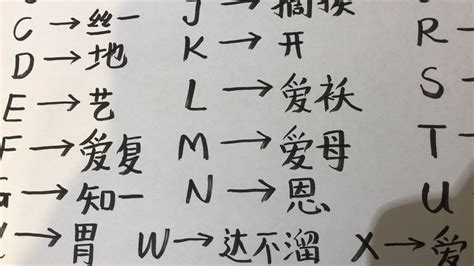 C→丝一
D→地
E→艺
F→爱复
G→知一
→胃
J→
K→开
L→爱袄
M→爱母
N→恩
W→达不溜
R→
S→
T→
U
X→爱